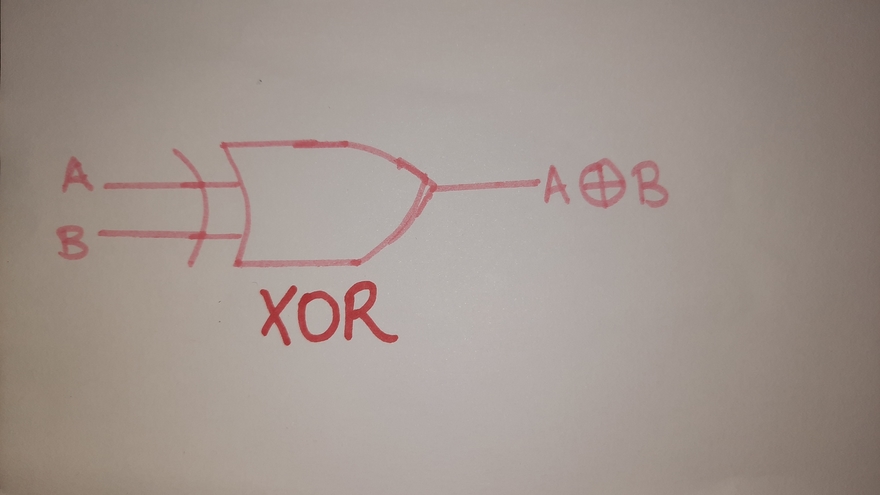 A
B
A ⊕ B
XOR